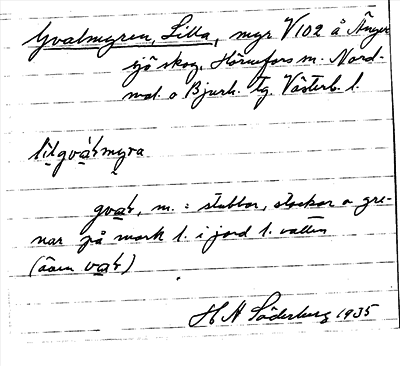 Gvalmyren, Lilla, myr V102 å Änger
sjö skog, Hörnefors m. Nord-
mal. o Bjurh. tg. Västerb. l.
lilgvalmyra
gval, m. = stubbar, stockar o gre-
nar på mark l. i jord l. vatten
(även val)
H A Söderberg 1935